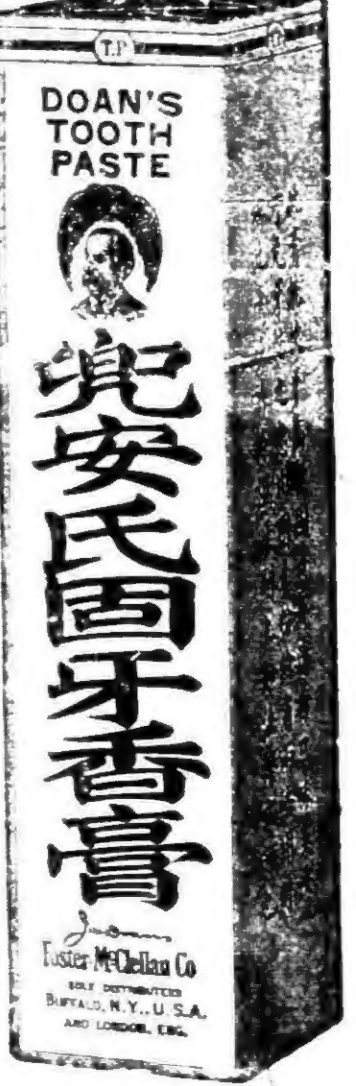 T.P
DOAN'S
TOOTH
PASTE
兜安氏固牙香膏
Foster-McClellan Co
SOLE DISTRIBUTERS
BUFFALO, N.Y., U.S.A.
AND LONDON, ENG.